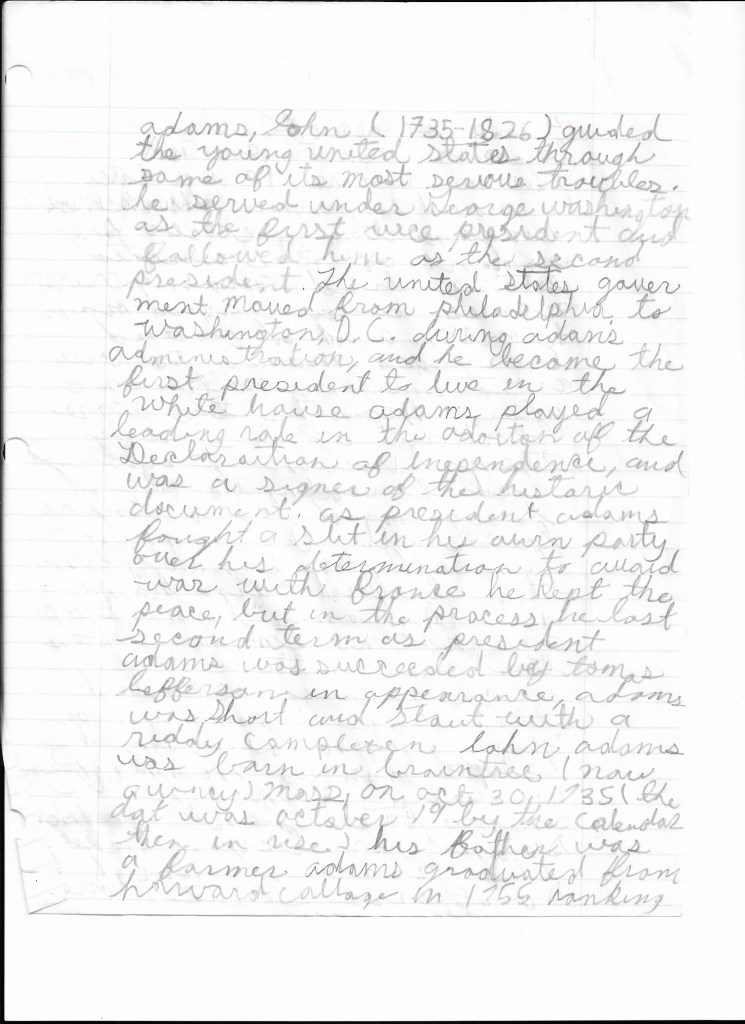 adams, John (1735-1826) guided
the young united states through
some of its most serious troubles.
he served under George washington
as the first vice president and
followed him as the second
president. The united states gover
ment moved from philadelphia to
washington, D.C. during adam's
administration, and he become the
first president to live in the
White house adams played a
leading role in the adoiton of the
Declaraition of inependence, and
was a signer of the historic
document. as president adams
fought a slit in his own party
over his determination to avoid
war with france he kept the
peace, but in the process he lost
second term as president
adams was succeeded by tomas
Jefferson in appearance, adams
was short and stout with a
riddy complexen John adams
was born in braintree (now
quincy) Mass, on oct 30, 1735 (the
dat was october 19 by the calendar
then in use) his father was
a farmer adams graduated from
harvard collage in 1755 ranking